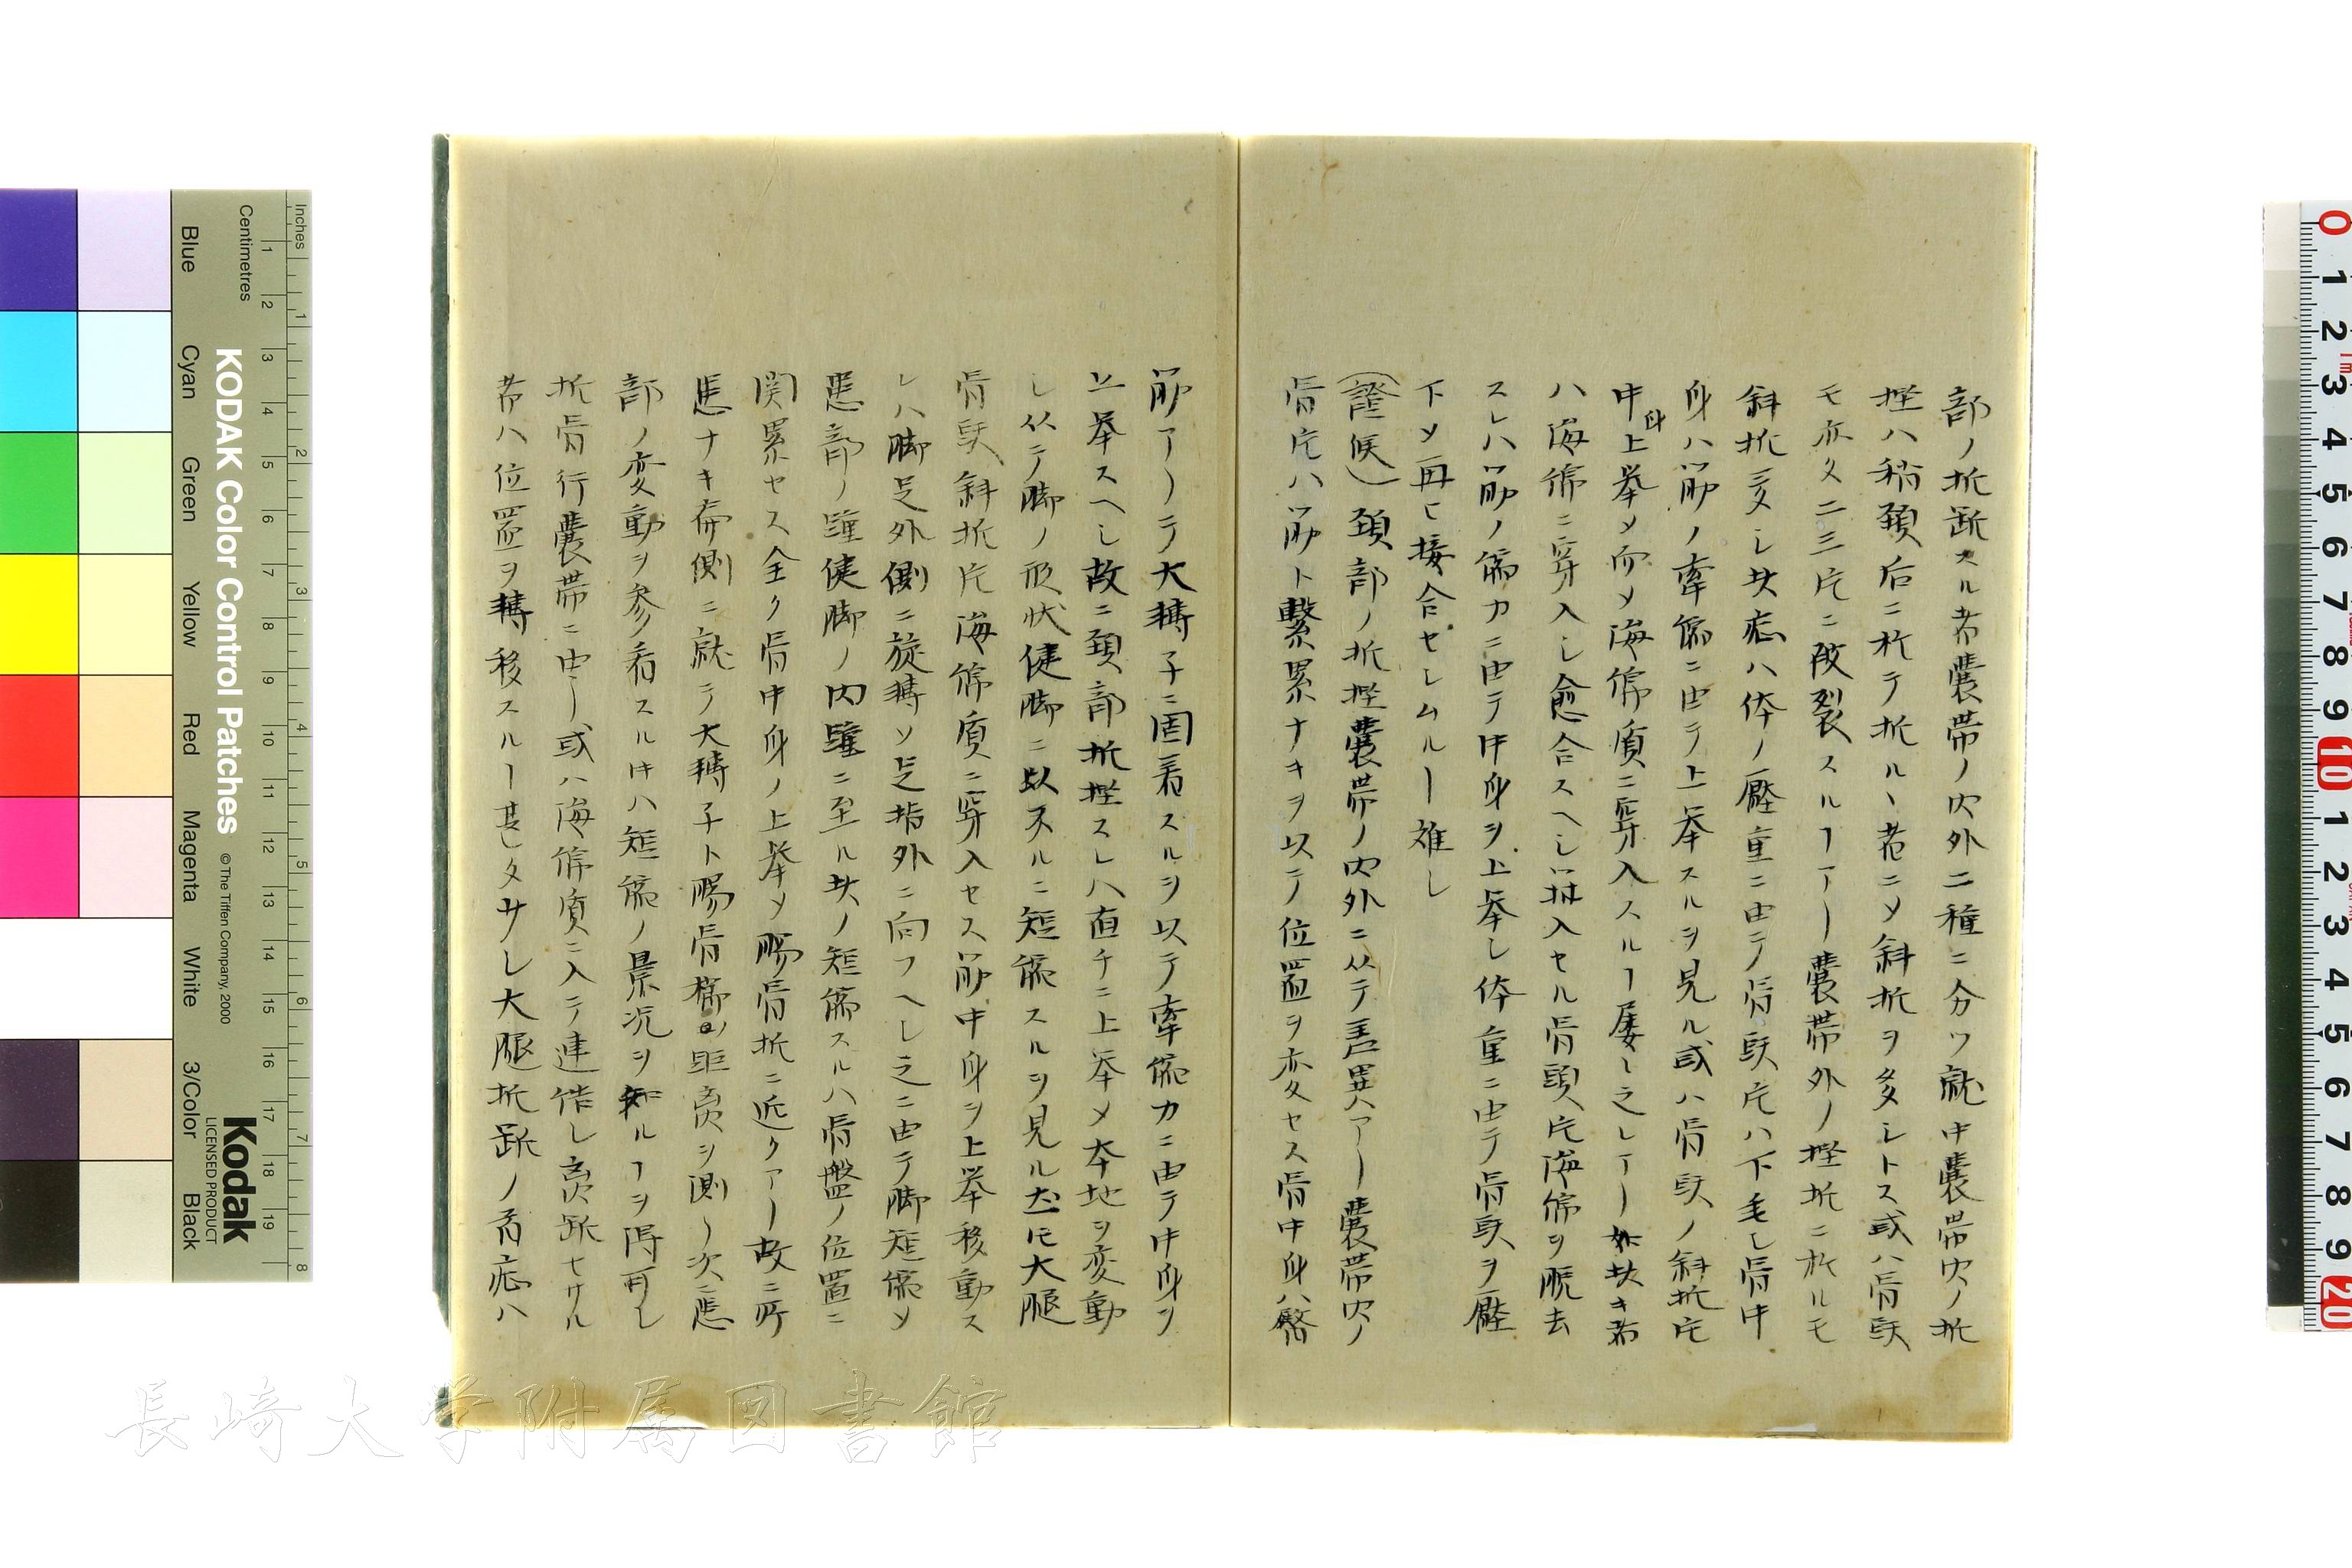 部ノ折断スル者嚢帯ノ内外二種ニ分ツ就中嚢帯内ノ折
挫ハ稍頚后ニ於テ折ルヽ者ニメ斜折ヲ多シトス或ハ骨頭
モ亦タ二三片ニ破裂スルヿアリ嚢帯外ノ挫折ニ於ルモ
斜折多シ其症ハ体ノ壓重ニ由テ骨頭片ハ下垂シ骨中
身ハ筋ノ牽縮ニ由テ上挙スルヲ見ル或ハ骨頭ノ斜折片
中身上挙メ而メ海綿質ニ穿入スルヿ屡〻之レアリ如其キ者
ハ海綿ニ穿入シ愈合スヘシ挿入セル骨頭片海綿ヲ脱去
スレハ筋ノ縮力ニ由テ中身ヲ上挙シ体重ニ由テ骨頭ヲ壓
下メ再ヒ接合セシムルヿ難シ
(證候) 頚部ノ折挫嚢帯ノ内外ニ从テ差異アリ嚢帯内ノ
骨片ハ筋ト繋累ナキヲ以テ位置ヲ変セス骨中身ハ臀
筋アリテ大轉子ニ固着スルヲ以テ牽縮力ニ由テ中身ヲ
上挙スヘシ故ニ頚部折挫スレハ直チニ上挙メ本地ヲ変動
シ从テ脚ノ形状健脚ニ以ルニ短縮スルヲ見ル尤モ大腿
骨頭斜折片海綿質ニ穿入セス筋中身ヲ上挙移動ス
レハ脚足外側ニ旋轉ソ足指外ニ向フヘシ之ニ由テ脚短縮メ
患部ノ踵健脚ノ内踵ニ至ル其ノ短縮スルハ骨盤ノ位置ニ
関累セス全ク骨中身ノ上挙メ腸骨折ニ近クアリ故ニ所
患ナキ斉側ニ就テ大轉子ト腸骨櫛ノ距离ヲ測リ次ニ患
部ノ変動ヲ参看スル片ハ短縮ノ景况ヲ知ルヿヲ得可シ
折骨行嚢帯ニ由リ或ハ海綿質ニ入テ連借シ离断セサル
者ハ位置ヲ轉移スルヿ甚タサレ大腿折断ノ看症ハ
KODAK Color Control Patches
© The Tiffen Company, 2000
Kodak
LICENSED PRODUCT
Inches
Centimetres
Blue
Cyan
Green
Yellow
Red
Magenta
White
3/Color
Black
長崎大学附属図書館